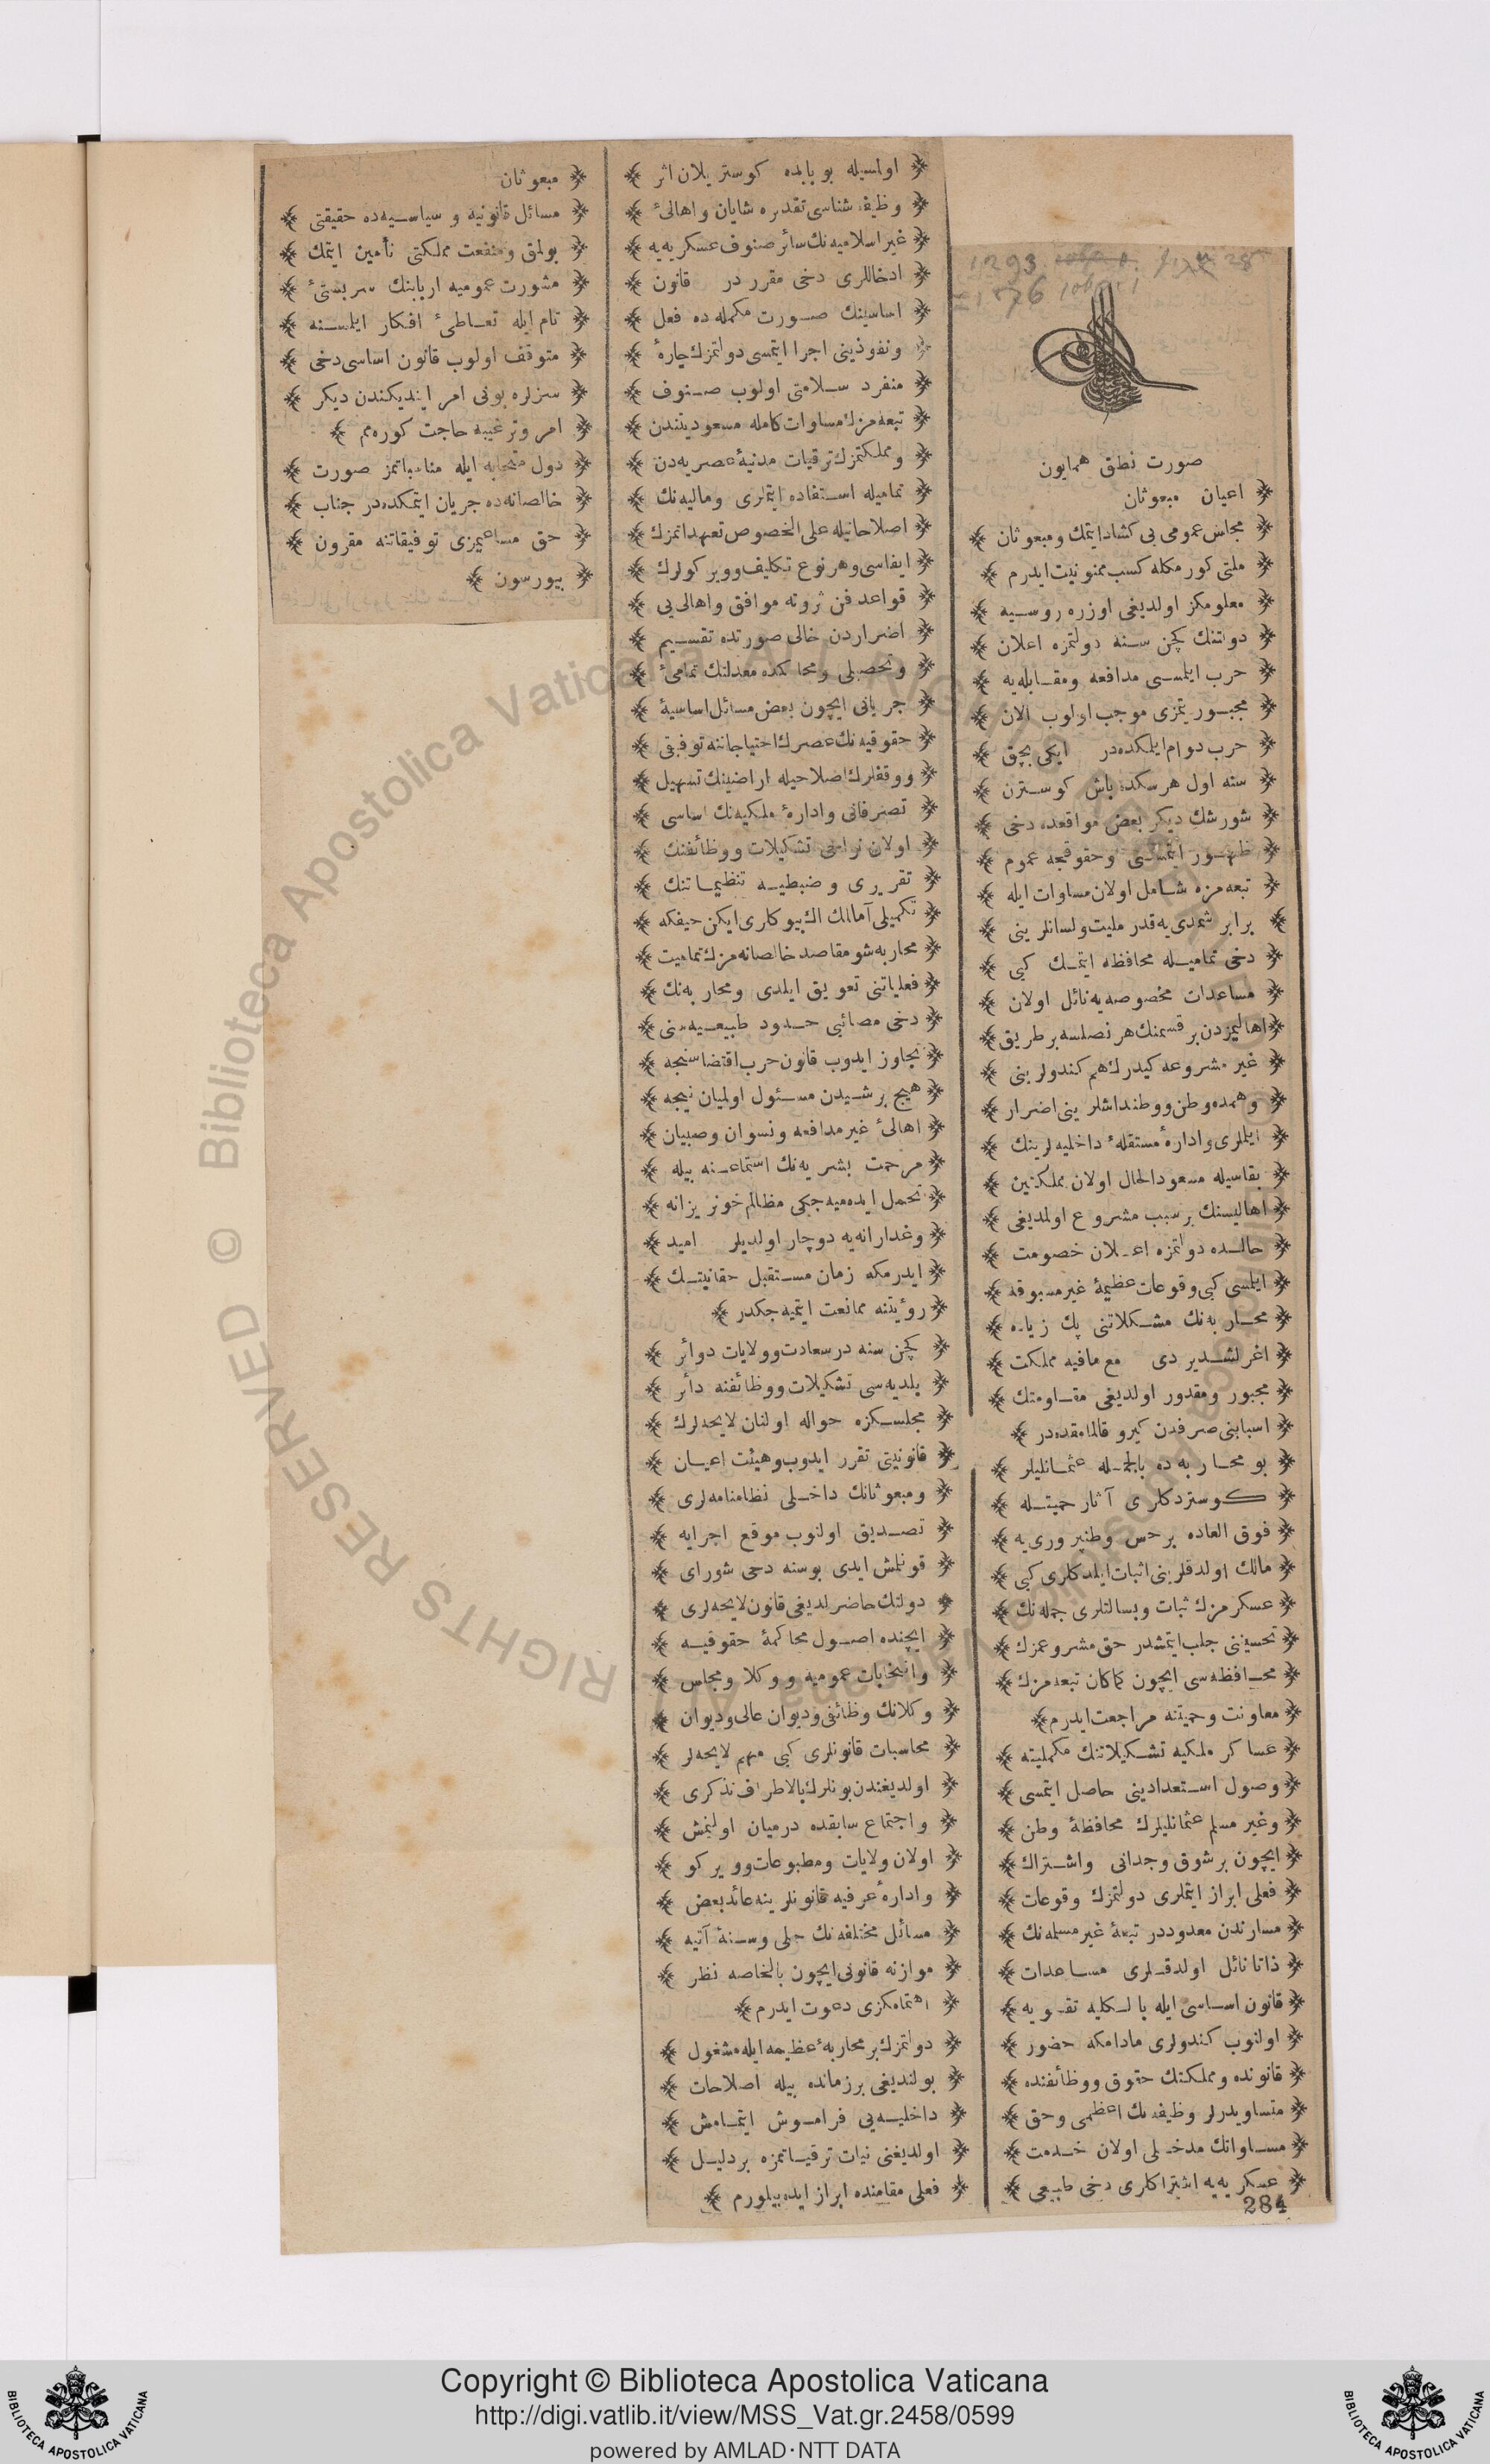 1293
1876
صورت نطق همایون
اعیان مبعوثان
مجلس عمومی یی کشاد ایتمك و مبعوثان
ملتی کورمكله كسب ممنونیت ایدرم
معلومكز اولدیغی اوزره روسیه
دولتنك كچن سنه دولتمزه اعلان
حرب ایلمسی مدافعه ومقابله یه
مجبوریتمزی موجب اولوب الان
حرب دوام ایلمكده در ایكی بچق
سنه اول هرسكده باش كوسترن
شورشك دیكر بعض مواقعده دخی
ظهور ایتمسی وحقوقجه عموم
تبعه مزه شامل اولان مساوات ایله
برابر شمدی یه قدر ملیت ولسانلرینی
دخی تمامیله محافظه ایتمك كبی
مساعدات مخصوصه یه نائل اولان
اهالیمزدن بر قسمنك هر نصلسه بر طریق
غیر مشروعه كیدرك هم كندولرینی
وهمده وطن ووطنداشلرینی اضرار
ایللری وادارهٔ مستقلهٔ داخلیه لرینك
بقاسیله مسعود الحال اولان مملكتین
اهالیسنك بر سبب مشروع اولمدیغی
حالده دولتمزه اعلان خصومت
ایلمسی كبی وقوعات عظیمهٔ غیر مسبوقه
محاربه نك مشكلاتنی پك زیاده
اغرلشدیردی مع مافیه مملكت
مجبور ومقدور اولدیغی مقاومتك
اسبابنی صرفدن كیرو قالمامقده در
بو محاربه ده بالجمله عثمانلیلر
كوستردكلری آثار حمیتله
فوق العاده بر حس وطنپروری یه
مالك اولدقلرینی اثبات ایلدكلری كبی
عسكرمزك ثبات وبسالتلری جمله نك
تحسیننی جلب ایتمشدر حق مشروعمزك
محافظه سی ایچون كماكان تبعه مزك
معاونت وحمیتنه مراجعت ایدرم
عساكر ملكیه تشكیلاتنك مكملیته
وصول استعدادینی حاصل ایتمسی
وغیر مسلم عثمانلیلرك محافظهٔ وطن
ایچون بر شوق وجدانی واشتراك
فعلی ابراز ایتملری دولتمزك وقوعات
مسارندن معدوددر تبعهٔ غیر مسلمه نك
ذاتا نائل اولدقلری مساعدات
قانون اساسی ایله بالكلیه تقویه
اولنوب كندولری مادامكه حضور
قانونده ومملكتك حقوق ووظائفنده
متساویدرلر وظیفه نك اعظمی وحق
مساواتك مدخلی اولان خدمت
عسكریه یه اشتراكلری دخی طبیعی
284
اولمسیله بو بابده كوستریلان اثر
وظیفه شناسی تقدیره شایان واهالیٔ
غیر اسلامیه نك سائر صنوف عسكریه یه
ادخاللری دخی مقرر در قانون
اساسینك صورت مكمله ده فعل
ونفوذینی اجرا ایتمسی دولتمزك چارهٔ
منفرد سلامتی اولوب صنوف
تبعه مزك مساوات كامله مسعودیتندن
ومملكتمزك ترقیات مدنیهٔ عصریه دن
تمامیله استفاده ایتملری ومالیه نك
اصلاحاتیله علی الخصوص تعهداتمزك
ایفاسی وهر نوع تكلیف وویركولرك
قواعد فن ثروته موافق واهالی یی
اضراردن خالی صورتده تقسیم
وتحصیلی ومحاكمده معدلتك تمامیٔ
جریانی ایچون بعض مسائل اساسیهٔ
حقوقیه نك عصرك احتیاجاتنه توفیقی
ووقفلرك اصلاحیله اراضینك تسهیل
تصرفاتی وادارهٔ ملكیه نك اساسی
اولان نواحی تشكیلات ووظائفنك
تقریری وضبطیه تنظیماتنك
تكمیلی آمالك اك بیوكلری ایكن حیفكه
محاربه شو مقاصد خالصانه مزك تمامیت
فعلیاتنی تعویق ایلدی ومحاربه نك
دخی مصائبی حدود طبیعیه سنی
تجاوز ایدوب قانون حرب اقتضاسنجه
هیچ بر شیدن مسئول اولمیان نیجه
اهالیٔ غیر مدافعه ونسوان وصبیان
مرحمت بشریه نك استماعنه بیله
تحمل ایده میه جكی مظالم خونریزانه
وغدارانه یه دوچار اولدیلر امید
ایدرمكه زمان مستقبل حقانیتك
رؤیتنه ممانعت ایتمیه جكدر
كچن سنه درسعادت وولایات دوائر
بلدیه سی تشكیلات ووظائفنه دائر
مجلسكزه حواله اولنان لایحه لرك
قانونیتی تقرر ایدوب وهیئت اعیان
ومبعوثانك داخلی نظامنامه لری
تصدیق اولنوب موقع اجرایه
قونلمش ایدی بو سنه دخی شورای
دولتك حاضرلدیغی قانون لایحه لری
ایچنده اصول محاكمهٔ حقوقیه
وانتخابات عمومیه ووكلا ومجلس
وكلانك وظائفی ودیوان عالی ودیوان
محاسبات قانونلری كبی مهم لایحه لر
اولدیغندن بونلرك بالاطراف تذكری
واجتماع سابقده درمیان اولنمش
اولان ولایات ومطبوعات وویركو
وادارهٔ عرفیه قانونلرینه عائد بعض
مسائل مختلفه نك حلی وسنهٔ آتیه
موازنه قانونی ایچون بالخاصه نظر
اهتمامكزی دعوت ایدرم
دولتمزك بر محاربهٔ عظیمه ایله مشغول
بولندیغی بر زمانده بیله اصلاحات
داخلیه یی فراموش ایتمامش
اولدیغنی نیات ترقیاتمزه بر دلیل
فعلی مقامنده ابراز ایده بیلورم
مبعوثان
مسائل قانونیه وسیاسیه ده حقیقتی
بولمق ومنفعت مملكتی تأمین ایتمك
مشورت عمومیه اربابنك سربستیٔ
تام ایله تعاطیٔ افكار ایلمسنه
متوقف اولوب قانون اساسی دخی
سزلره بونی امر ایندیكندن دیكر
امر وترغیبه حاجت كوره مم
دول متحابه ایله مناسباتمز صورت
خالصانه ده جریان ایتمكده در جناب
حق مساعیمزی توفیقاتنه مقرون
بیورسون
© Biblioteca Apostolica Vaticana ALL RIGHTS RESERVED
Copyright © Biblioteca Apostolica Vaticana
http://digi.vatlib.it/view/MSS_Vat.gr.2458/0599
powered by AMLAD·NTT DATA
BIBLIOTECA APOSTOLICA VATICANA
BIBLIOTECA APOSTOLICA VATICANA